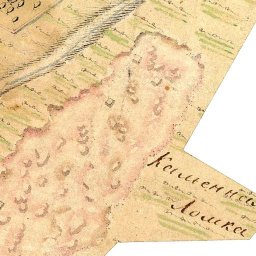 Каменна
Ломка